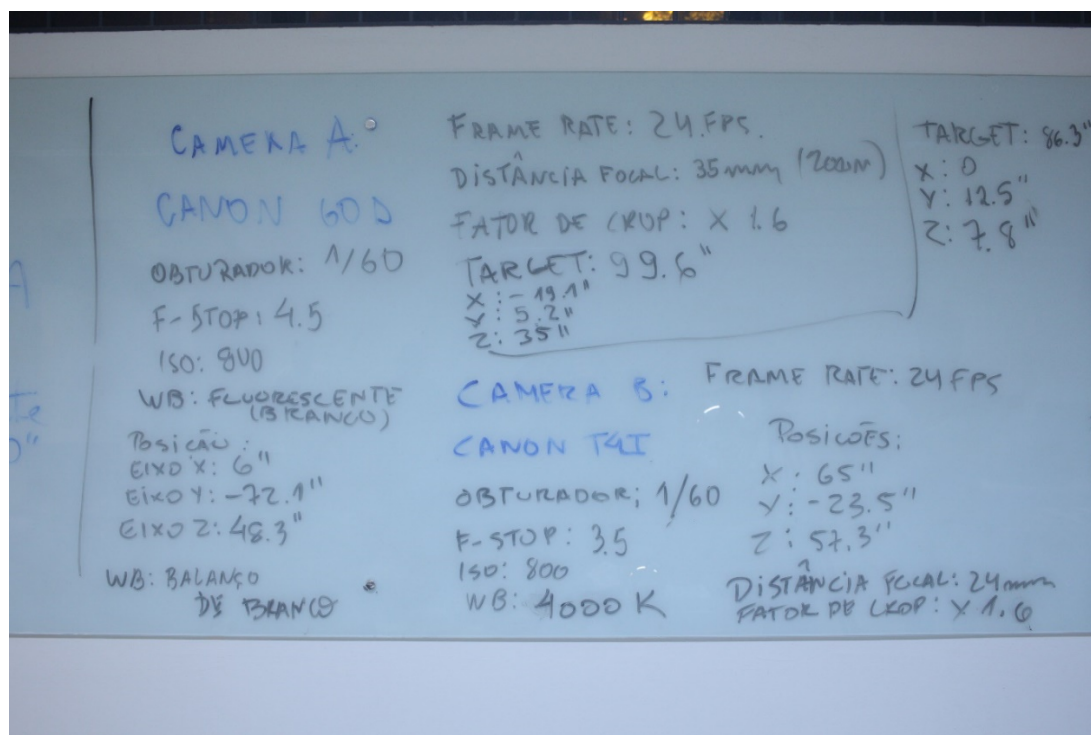 CAMERA A:
CANON 60D
OBTURADOR: 1/60
F-STOP: 4.5
ISO: 800
WB: FLUORESCENTE
(BRANCO)
POSIÇÃO:
EIXO X: 6"
EIXO Y: -72.1"
EIXO Z: 48.3"
WB: BALANÇO
DE BRANCO
FRAME RATE: 24 FPS.
DISTÂNCIA FOCAL: 35mm (zoom)
FATOR DE CROP: X 1.6
TARGET: 99.6"
X: -19.1"
Y: 5.2"
Z: 35"
TARGET: 86.3"
X: 0
Y: 12.5"
Z: 7.8"
CAMERA B:
CANON T4I
OBTURADOR; 1/60
F-STOP: 3.5
ISO: 800
WB: 4000 K
FRAME RATE: 24 FPS
POSIÇÕES:
X: 65"
Y: -23.5"
Z: 57.3"
DISTÂNCIA FOCAL: 24mm
FATOR DE CROP: X 1.6